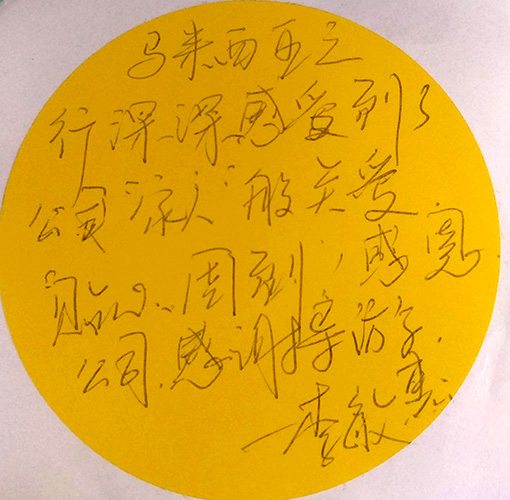 马来西亚之
行深深感受到了
公司"家人"般关爱
贴心周到，感恩
公司.感谢携游子.
李敏惠